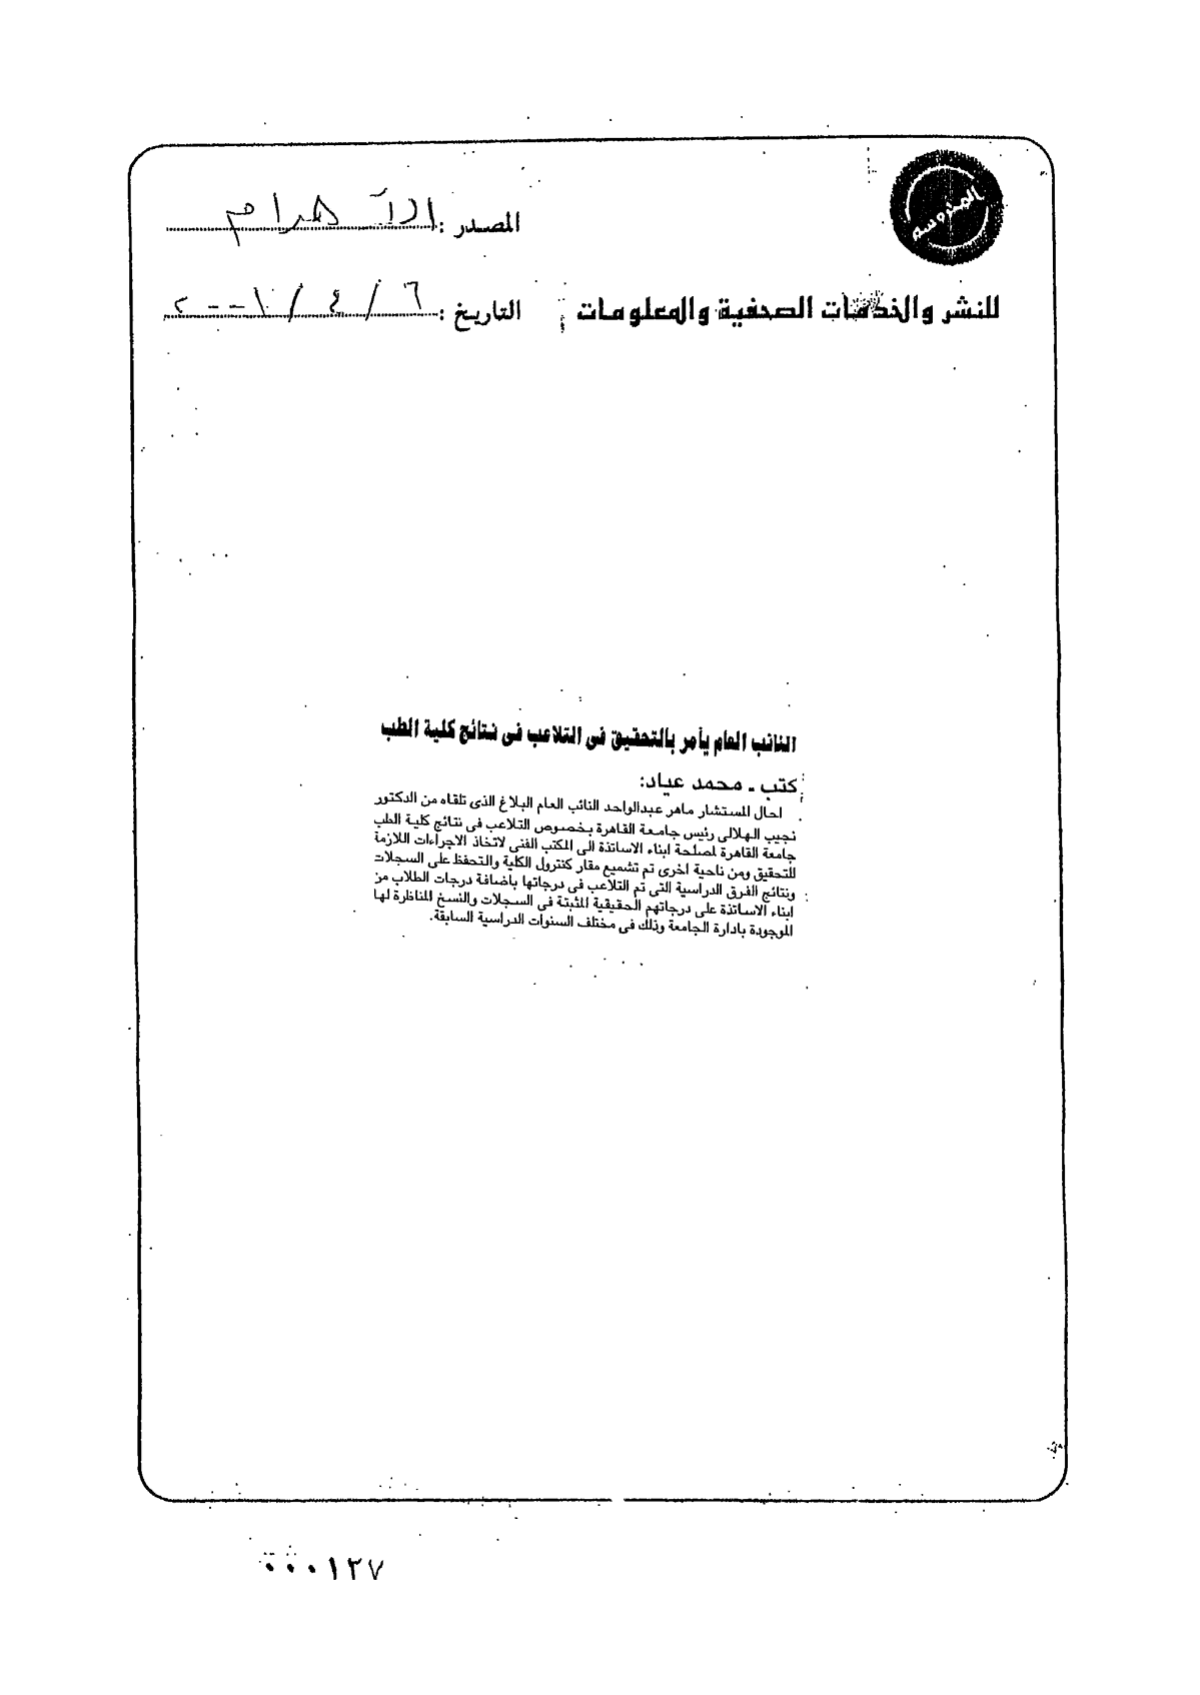 المحروسة
المصدر : الأهرام
للنشر والخدمات الصحفية والمعلومات
التاريخ : ٦ / ٤ / ٢٠٠١
النائب العام يأمر بالتحقيق فى التلاعب فى نتائج كلية الطب
كتب ـ محمد عياد:
احال المستشار ماهر عبدالواحد النائب العام البلاغ الذى تلقاه من الدكتور
نجيب الهلالى رئيس جامعة القاهرة بخصوص التلاعب فى نتائج كلية الطب
جامعة القاهرة لمصلحة ابناء الاساتذة الى المكتب الفنى لاتخاذ الاجراءات اللازمة
للتحقيق ومن ناحية اخرى تم تشميع مقار كنترول الكلية والتحفظ على السجلات
ونتائج الفرق الدراسية التى تم التلاعب فى درجاتها باضافة درجات الطلاب من
ابناء الاساتذة على درجاتهم الحقيقية المثبتة فى السجلات والنسخ المناظرة لها
الموجودة بادارة الجامعة وذلك فى مختلف السنوات الدراسية السابقة.
٠٠٠١٢٧